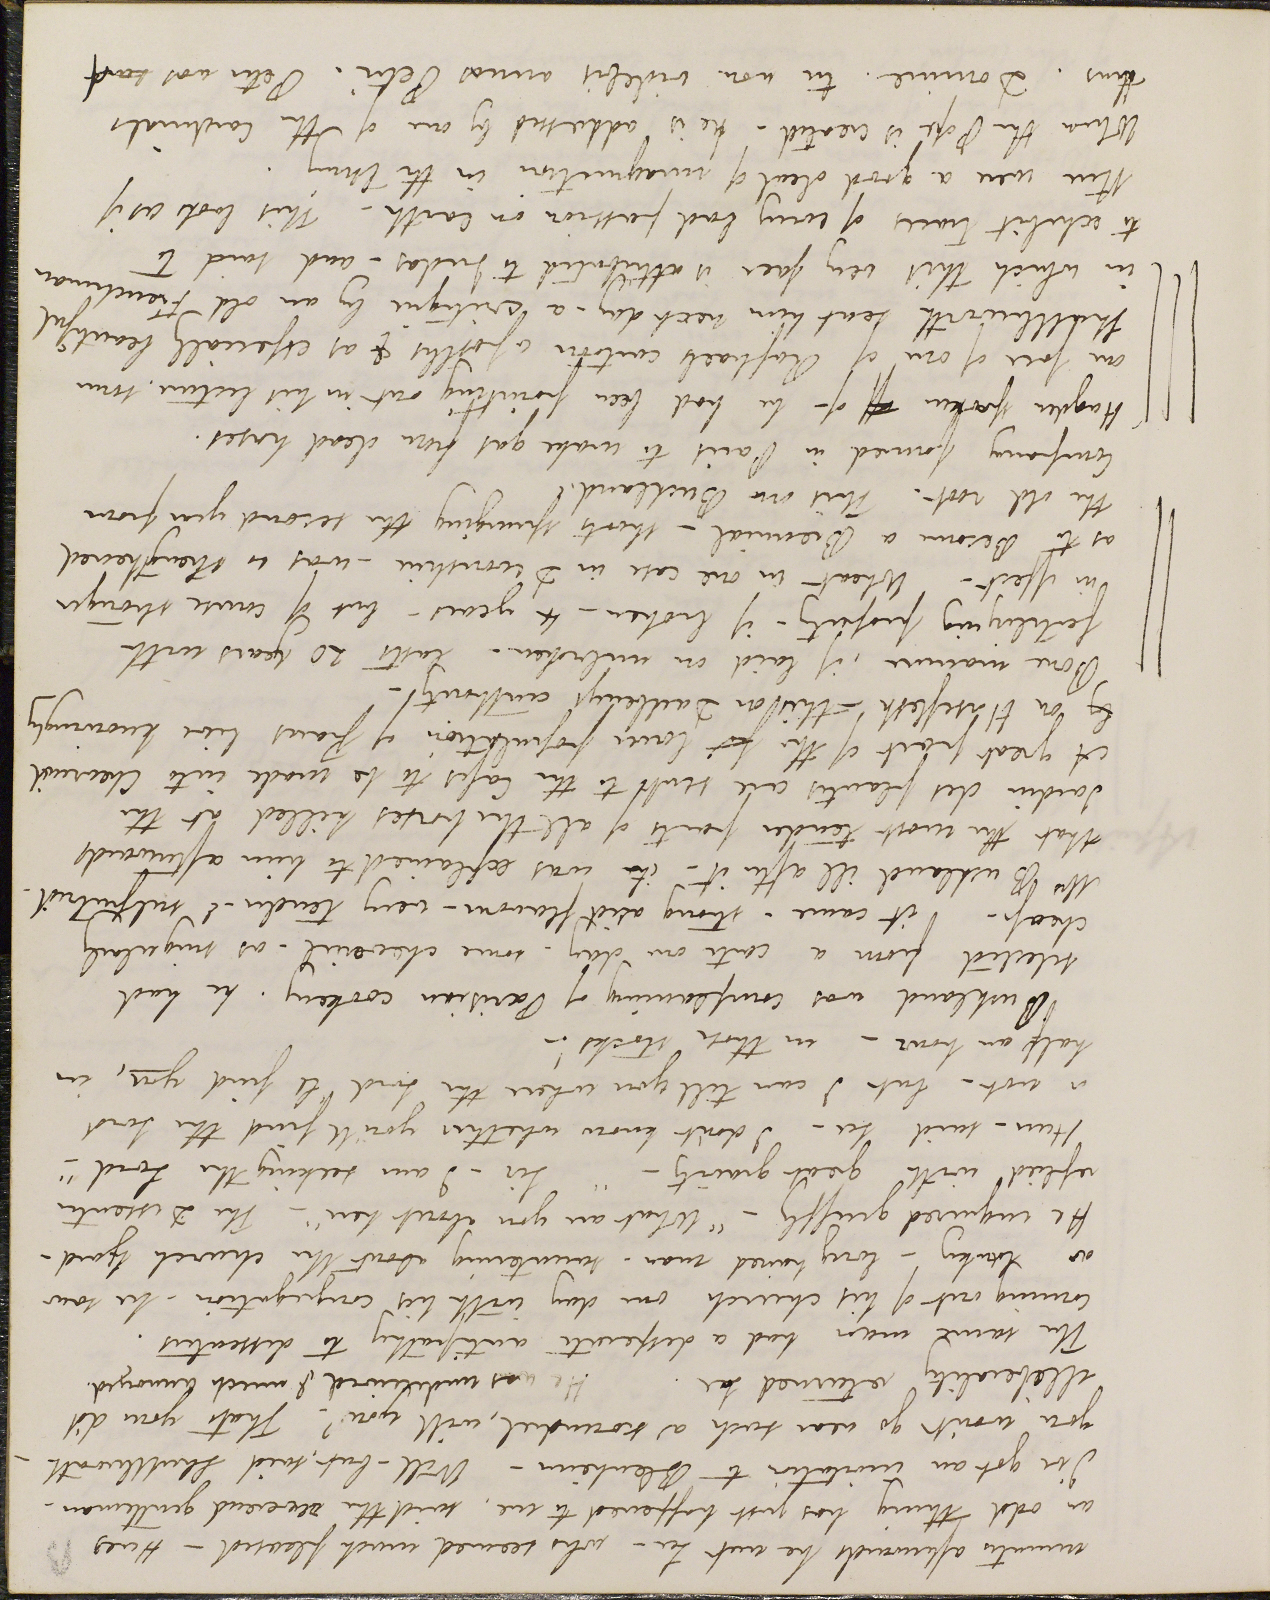 minutes afterwards he met Lee - who seemed much pleased - Heres
an odd thing has just happened to me, said the reverend gentleman -
I've got an invitation to Blenheim - Well - but, said Shuttleworth -
you won't go near such a scoundrel, will you? - Thats your d'd
illiberality returned Lee. He was undeceived, & much annoyed.
The same man had a desperate antipathy to dissenters.
Coming out of his church one day with his congregation - he saw
a lanky - long haired man - sauntering about the church yard -
He inquired gruffly - "What are you about here" - The Dissenter
replied with great gravity - " Sir - I am seeking the Lord" -
Hum - said Lee - I don't know whether you'll find the Lord
or not - but I can tell you where the Lord 'll find you, in
half an hour - in those stocks! -
Buckland was complaining of Parisian cookery. he had
selected from a carte one day - some chevreuil - as singularly
cheap - it came - strong acid flavour - very tender - & subputrid -
Mrs Buckland ill after it - it was explained to him afterwards
that the most tender parts of all the horses killed at the
Jardin des plantes are sent to the Cafes to be made into Chevreuil
A great part of the lower population of Paris live knowingly
on Horseflesh - this on Daubenys authority -
Bone manure, if laid on unbroken - lasts 20 years with
fertilizing property - if broken - 4 years - but of course stronger
in effect - Wheat in one case in Devonshire - was so strengthened
as to Become a Biennial - shoots springing the second year from
the old root. This on Buckland.
Company formed in Paris to make gas from dead horses.
Haydon spoken off of - he had been pointing out in his lecture, some
one face of one of Raphaels cartoon apostles & as especially beautiful
Shuttleworth sent him next day - a critique by an old Frenchman
in which this very face is attributed to Judas - and said to
to exhibit traces of every bad passion on earth - This looks as if
there were a good deal of imagination in the thing.
When the Pope is created - he is addressed by one of the Cardinals
thus. Domine. tu non videbis annos Petri. Peter was said